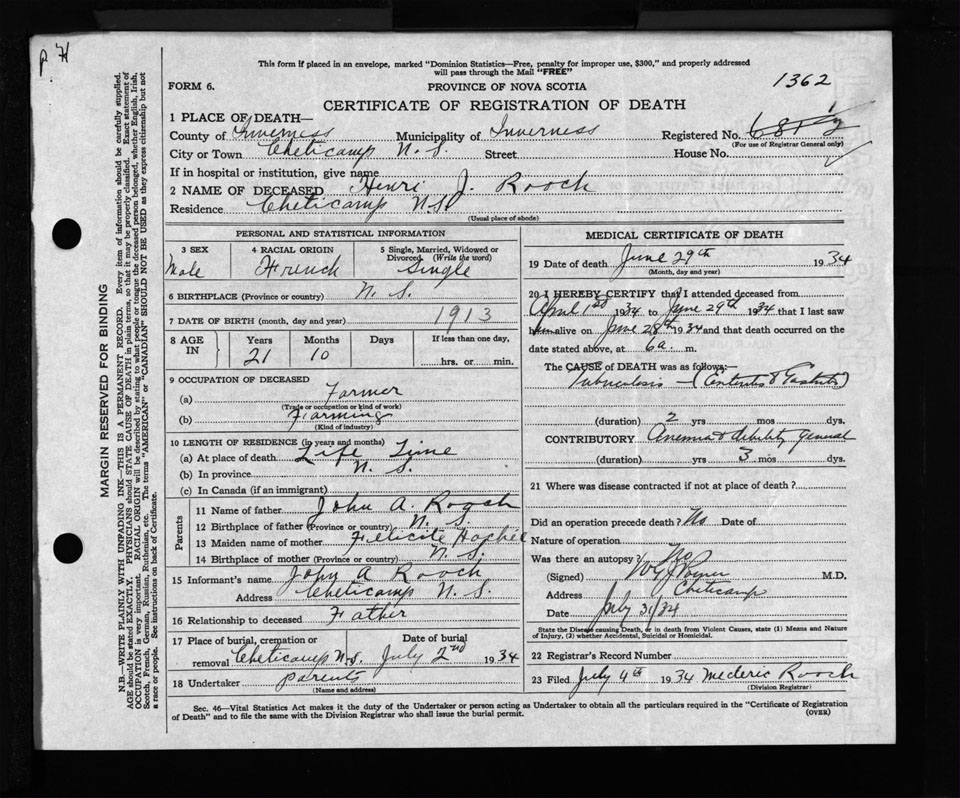 P. H
This form if placed in an envelope, marked "Dominion Statistics—Free, penalty for improper use, $300," and properly addressed
will pass through the Mail "FREE"
1362
FORM 6.
PROVINCE OF NOVA SCOTIA
CERTIFICATE OF REGISTRATION OF DEATH
1 PLACE OF DEATH—
County of Inverness Municipality of Inverness Registered No.
(For use of Registrar General only)
City or Town Cheticamp N. S. Street House No.
If in hospital or institution, give name
2 NAME OF DECEASED Henri J. Rooch
Residence Cheticamp N.S.
(Usual place of abode)
PERSONAL AND STATISTICAL INFORMATION
3 SEX 4 RACIAL ORIGIN 5 Single, Married, Widowed or Divorced (Write the word)
Male French Single
6 BIRTHPLACE (Province or country) N. S.
7 DATE OF BIRTH (month, day and year) 1913
8 AGE IN Years Months Days If less than one day,
21 10 hrs. or min.
9 OCCUPATION OF DECEASED
(a) Farmer
(Trade or occupation or kind of work)
(b) Farming
(Kind of industry)
10 LENGTH OF RESIDENCE (in years and months)
(a) At place of death Life Time
(b) In province N. S.
(c) In Canada (if an immigrant)
Parents
11 Name of father John A. Rooch
12 Birthplace of father (Province or country) N. S.
13 Maiden name of mother
14 Birthplace of mother (Province or country) N. S.
15 Informant's name John A Rooch
Address Cheticamp N. S.
16 Relationship to deceased Father
17 Place of burial, cremation or removal Cheticamp N.S. Date of burial July 2nd 1934
18 Undertaker parents
(Name and address)
MEDICAL CERTIFICATE OF DEATH
19 Date of death June 29th 1934
(Month, day and year)
20 I HEREBY CERTIFY that I attended deceased from
April 1st 1934 to June 29th 1934 that I last saw
him alive on June 28th 1934 and that death occurred on
date stated above, at 6 a. m.
The CAUSE of DEATH was as follows:—
Tuberculosis — (Enteritis & Gastritis)
(duration) 2 yrs mos dys.
CONTRIBUTORY Anemia & debility general
(duration) yrs 3 mos dys.
21 Where was disease contracted if not at place of death?
Did an operation precede death? No Date of
Nature of operation
Was there an autopsy? No
(Signed) M.D.
Address Cheticamp
Date July 31/34
State the Disease causing Death, or in death from Violent Causes, state (1) Means and Nature
of Injury, (2) whether Accidental, Suicidal or Homicidal.
22 Registrar's Record Number
23 Filed July 4th 1934 Mederic Rooch
(Division Registrar)
Sec. 46—Vital Statistics Act makes it the duty of the Undertaker or person acting as Undertaker to obtain all the particulars required in the "Certificate of Registration
of Death" and to file the same with the Division Registrar who shall issue the burial permit.
(OVER)
MARGIN RESERVED FOR BINDING
N.B.—WRITE PLAINLY WITH UNFADING INK—THIS IS A PERMANENT RECORD. Every item of information should be carefully supplied.
AGE should be stated EXACTLY. PHYSICIANS should STATE CAUSE OF DEATH in plain terms, so that it may be properly classified. Exact statement of
OCCUPATION is very important. RACIAL ORIGIN will be described by stating to what people or tongue the deceased person belonged, whether English, Irish,
Scotch, French, German, Russian, Ruthenian, etc. The terms "AMERICAN" or "CANADIAN" SHOULD NOT BE USED as they express citizenship but not
a race or people. See instructions on back of Certificate.